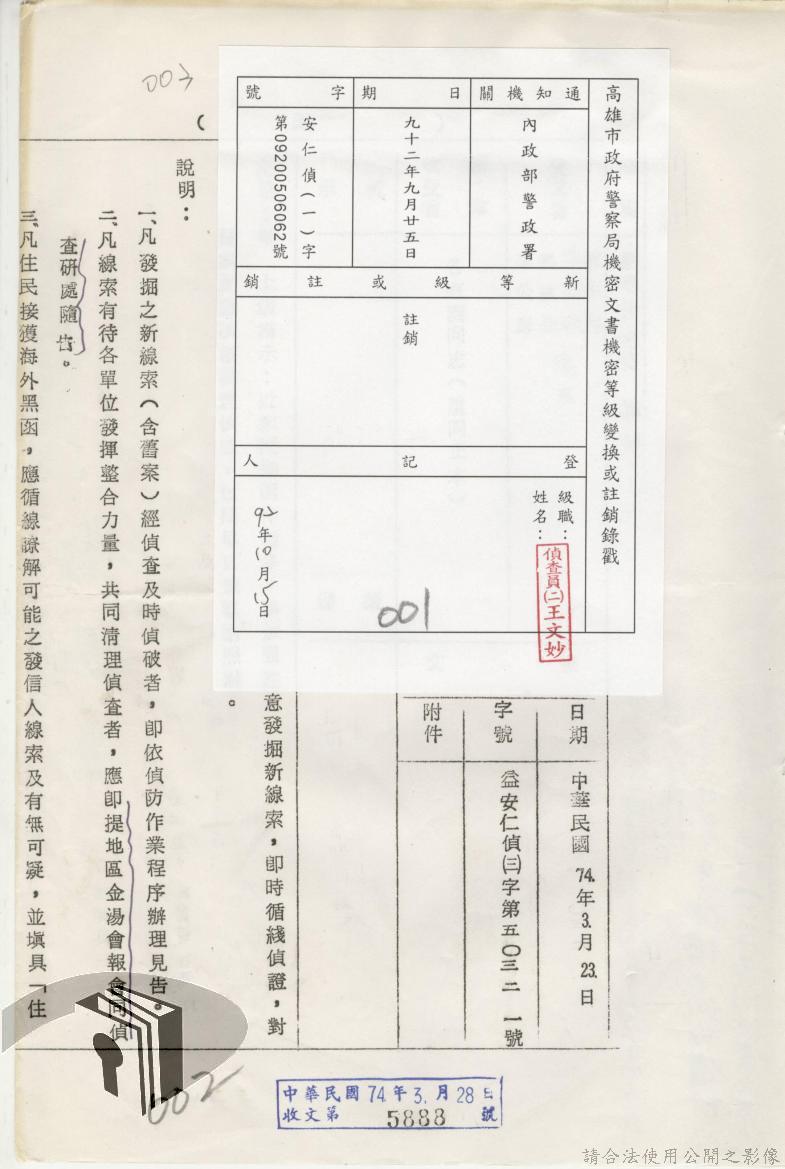 003
高雄市政府警察局機密文書機密等級變換或註銷錄戳
通知機關
內政部警政署
日期
九十二年九月廿五日
字號
安仁偵(一)字
第09200506062號
新等級或註銷
註銷
登記人
級職：
姓名：
偵查員(二)王文妙
92年10月15日
001
日期
中華民國74.年3.月23.日
字號
益安仁偵㈢字第五〇三二一號
附件
意發掘新線索，即時循綫偵證，對
。
(
說明：
一、凡發掘之新線索(含舊案)經偵查及時偵破者，即依偵防作業程序辦理見告。
二、凡線索有待各單位發揮整合力量，共同清理偵查者，應即提地區金湯會報會同偵
查研處隨告。
三、凡住民接獲海外黑函，應循線瞭解可能之發信人線索及有無可疑，並塡具「住
002
中華民國74.年3.月28日
收文第5888號
請合法使用公開之影像